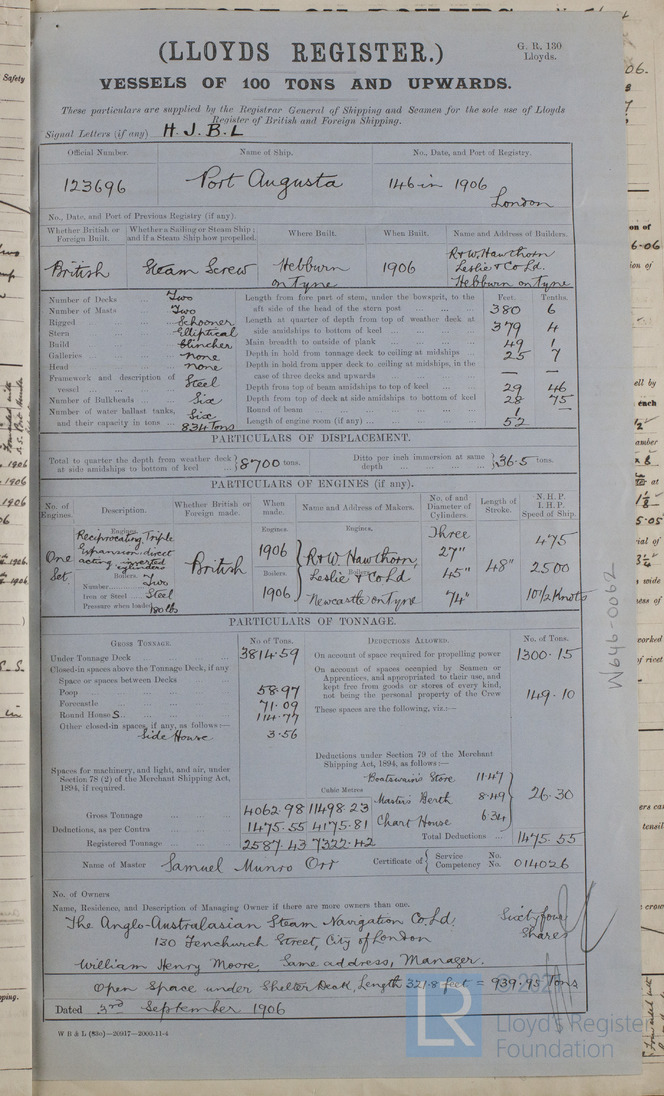 (LLOYDS REGISTER.)
G. R. 130
Lloyds.
VESSELS OF 100 TONS AND UPWARDS.
These particulars are supplied by the Registrar General of Shipping and Seamen for the sole use of Lloyds
Register of British and Foreign Shipping.
Signal Letters (if any) H. J. B. L
Official Number. Name of Ship. No., Date, and Port of Registry.
123696 Port Augusta 146 in 1906
London
No., Date, and Port of Previous Registry (if any).
Whether British or Foreign Built. Whether a Sailing or Steam Ship; and if a Steam Ship how propelled. Where Built. When Built. Name and Address of Builders.
British Steam Screw Hebburn on Tyne 1906 R & W. Hawthorn Leslie & Co Ld. Hebburn on Tyne
Number of Decks ... Two
Number of Masts ... Two
Rigged ... Schooner
Stern ... Elliptical
Build ... Clincher
Galleries ... none
Head ... none
Framework and description of vessel ... Steel
Number of Bulkheads ... Six
Number of water ballast tanks, and their capacity in tons ... Six 834 Tons
Feet. Tenths.
Length from fore part of stem, under the bowsprit, to the aft side of the head of the stern post ... 380 6
Length at quarter of depth from top of weather deck at side amidships to bottom of keel ... 379 4
Main breadth to outside of plank ... 49 1
Depth in hold from tonnage deck to ceiling at midships ... 25 7
Depth in hold from upper deck to ceiling at midships, in the case of three decks and upwards ... — —
Depth from top of beam amidships to top of keel ... 29 46
Depth from top of deck at side amidships to bottom of keel 28 75
Round of beam ... 1 —
Length of engine room (if any) ... 52
PARTICULARS OF DISPLACEMENT.
Total to quarter the depth from weather deck at side amidships to bottom of keel ... } 8700 tons. Ditto per inch immersion at same depth ... } 36.5 tons.
PARTICULARS OF ENGINES (if any).
No. of Engines. Description. Whether British or Foreign made. When made. Name and Address of Makers. No. of and Diameter of Cylinders. Length of Stroke. N.H.P. I.H.P. Speed of Ship.
One Set.
Engines.
Reciprocating Triple Expansion direct acting inverted cylinders
Boilers.
Number Two
Iron or Steel Steel
Pressure when loaded 180 lbs
British
Engines. 1906
Boilers. 1906
Engines.
R & W. Hawthorn,
Boilers.
Leslie & Co Ld
Newcastle on Tyne
Three
27"
45"
74"
48"
475
2500
10 1/2 Knots
PARTICULARS OF TONNAGE.
GROSS TONNAGE. No of Tons.
Under Tonnage Deck ... 3814.59
Closed-in spaces above the Tonnage Deck, if any
Space or spaces between Decks
Poop ... 58.97
Forecastle ... 71.09
Round Houses ... 114.77
Other closed-in spaces, if any, as follows:—
Side House 3.56
Spaces for machinery, and light, and air, under Section 78 (2) of the Merchant Shipping Act, 1894, if required.
Cubic Metres
Gross Tonnage ... 4062.98 11498.23
Deductions, as per Contra ... 1475.55 4175.81
Registered Tonnage ... 2587.43 7322.42
DEDUCTIONS ALLOWED. No. of Tons.
On account of space required for propelling power 1300.15
On account of spaces occupied by Seamen or Apprentices, and appropriated to their use, and kept free from goods or stores of every kind, not being the personal property of the Crew 149.10
These spaces are the following, viz.:—
Deductions under Section 79 of the Merchant Shipping Act, 1894, as follows:—
Boatswain's Store 11.47
Masters Berth 8.49
Chart House 6.34
26.30
Total Deductions ... 1475.55
Name of Master Samuel Munro Orr Certificate of { Service No. Competency No. 014026
No. of Owners
Name, Residence, and Description of Managing Owner if there are more owners than one.
The Anglo-Australasian Steam Navigation Co. Ld. Sixty four
130 Fenchurch Street, City of London Shares
William Henry Moore, Same address, Manager.
Open Space under Shelter Deck, Length 321.8 feet = 939.95 Tons
Dated 3rd September 1906
W B & L (83o)—20917—2000-11-4
W646-0062
LR
© 202
Lloyd's Register
Foundation